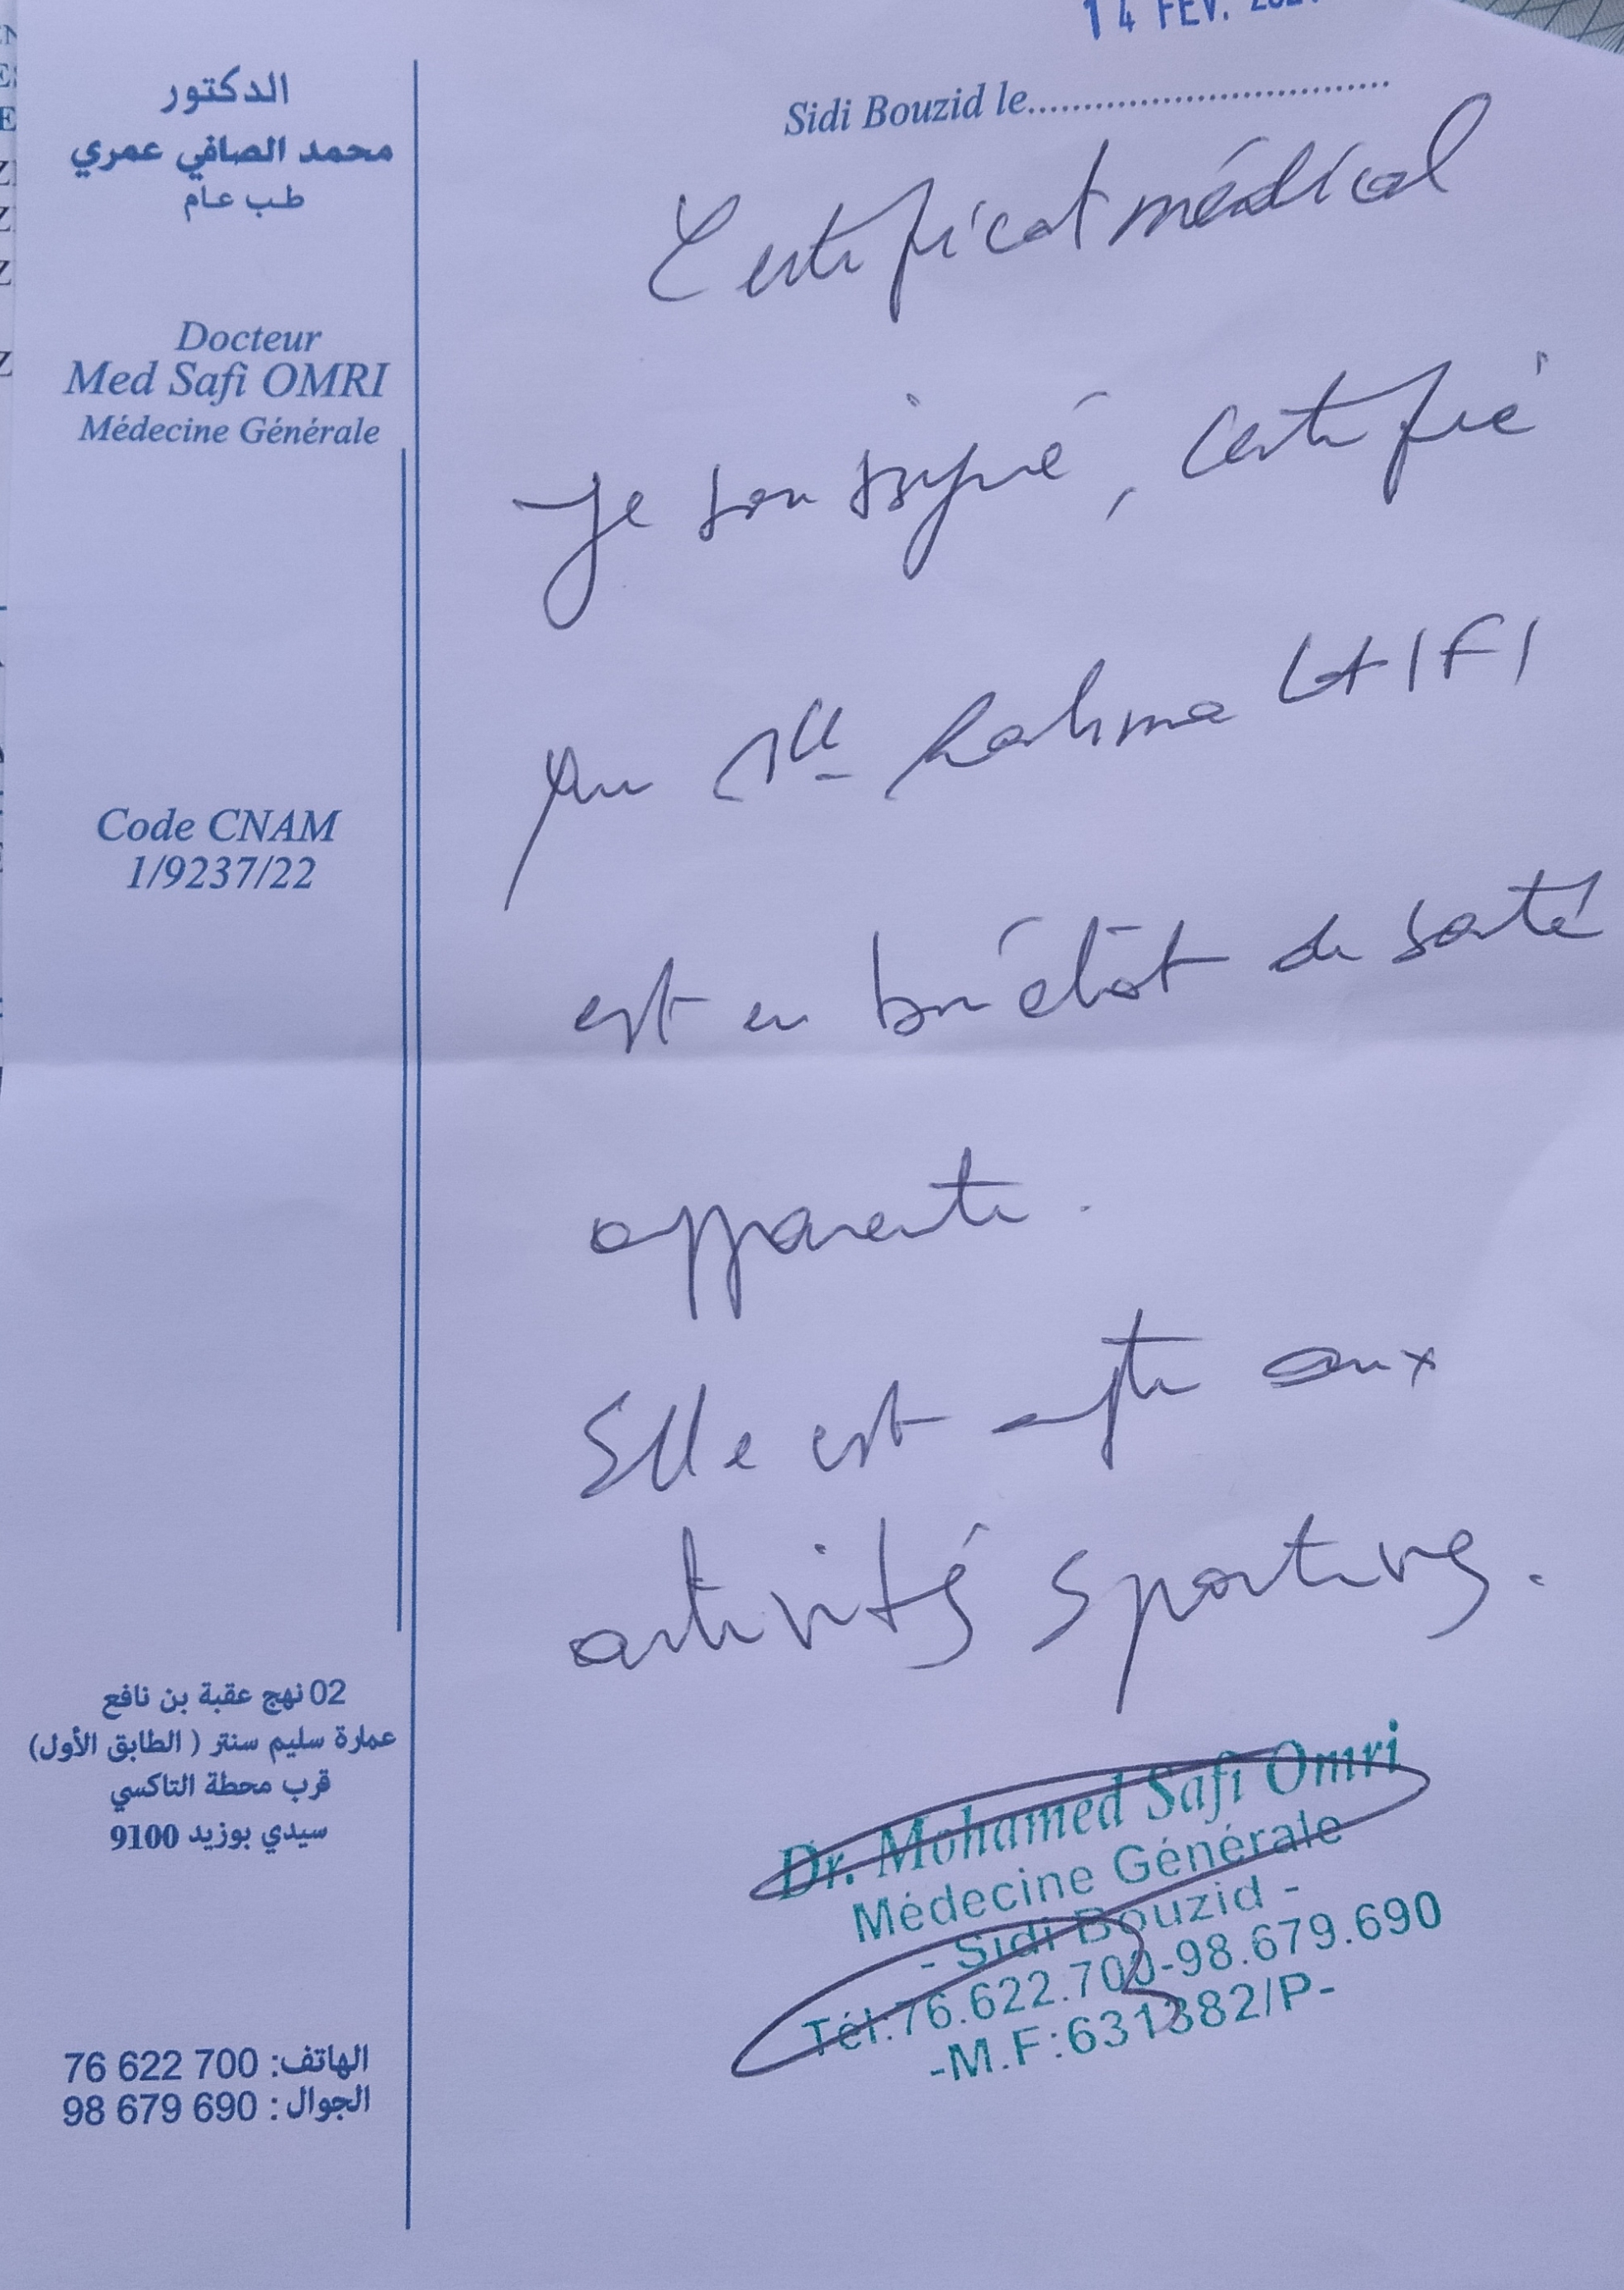 14 FEV.
Sidi Bouzid le
الدكتور
محمد الصافي عمري
طب عام
Docteur
Med Safi OMRI
Médecine Générale
Code CNAM
1/9237/22
Certificat médical
Je soussigné, certifié
que Mlle Rahma
est en bon état de santé
apparente.
Elle est apte aux
activités sportives.
02 نهج عقبة بن نافع
عمارة سليم سنتر ( الطابق الأول)
قرب محطة التاكسي
سيدي بوزيد 9100
الهاتف: 76 622 700
الجوال: 98 679 690
Dr. Mohamed Safi Omri
Médecine Générale
- Sidi Bouzid -
Tél:76.622.700-98.679.690
-M.F:631382/P-